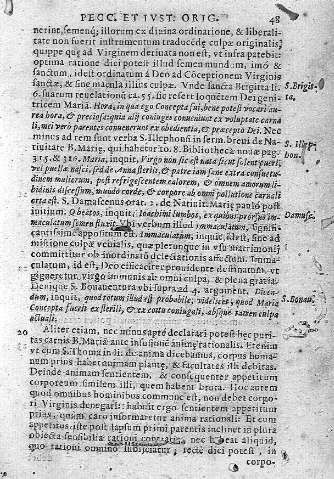 PECC. ET IVST. ORIG. 48
nerint, semenq; illorum ex diuina ordinatione, & liberali-
tate non fuerit instrumentum traducendę culpæ originalis,
quippe quę ad Virginem deriuata non est, vt infra patebit:
optima ratione dici potest illud semen mundum, imò &
sanctum, idest ordinatum à Deo ad Cōceptionem Virginis
sanctæ, & sine macula illius culpæ. Vnde sancta Brigitta li.
6. suarum reuelationū ca. 55. sic refert loquētem Dei geni-
S. Brigit-
ta.
tricem Mariā. Hora, in qua ego Concepta fui, bene potest vocari au-
rea hora, & preciosa, quia alij coniuges conueniunt ex voluptate carna
li, mei vero parentes conuenerunt ex obedientia, & præcepto Dei. Nec
minus ad rem sunt verba S. Illephonsi in serm. breui de Na-
tiuitate B. Marię, qui habetur to. 8. Bibliothecæ nouæ pag.
315. & 316. Maria, inquit, Virgo non sic est nata sicut solent pueri,
vel puellæ nasci, sed de Anna sterili, & patre iam sene extra consuetu-
dinem mulierum, post refrigescentem calorem, & omnem amorem li-
bidinis discessum, mundo corde, & corpore ab omni pollutione carnali
orta est. S. Damascenus orat. 2. de Natiuit. Marię patris post
Damasc.
initium. O beatos, inquit, Ioachimi lumbos, ex quibus prorsus im-
maculatum semen fluxit. Vbi verbum illud immaculatum, signifi-
cantissimè appositum est. Immaculatum, inquit, idest, sine ad
mistione culpæ venialis, quæ plerunque in vsu matrimonij
committitur ob inordinatū delectationis affectum. Imma-
culatum, id est, Deo efficaciter prouidente destinatum, vt
gigneretur Virgo immunis ab omni culpa, & plena gratia.
Denique S. Bonauentura vbi supra ad 4. argumentū. Dicen-
S. Bonau.
dum, inquit, quod totum illud est probabile, videlicet; quod Maria
Concepta fuerit ex sterili, & ex coitu coniugali, absque tamen culpa
actuali.
20 Aliter etiam, nec insuaptè declarari potest hęc puri-
tas carnis B. Mariæ ante infusionē animę rationalis. Etenim
vt cum S. Thoma in li. de anima dicebamus, corpus homi-
num prius habet animam plantę, & facultates illi debitas.
Deinde animam sentientem, & consequenter appetitum
corporeum similem illi, quem habent bruta. Hoc autem
quod omnibus hominibus commune est, non debet corpo-
ri Virginis denegari: habuit ergo sentientem appetitum
prius, quàm caro informaretur anima rationali. Et cum
appetitus iste post lapsum primi parentis inclinet in plura
obiecta sensibilia rationi contraria, nec habeat aliquid,
quo rationi omnino subijciatur, rectè dici potest, in
corpo-